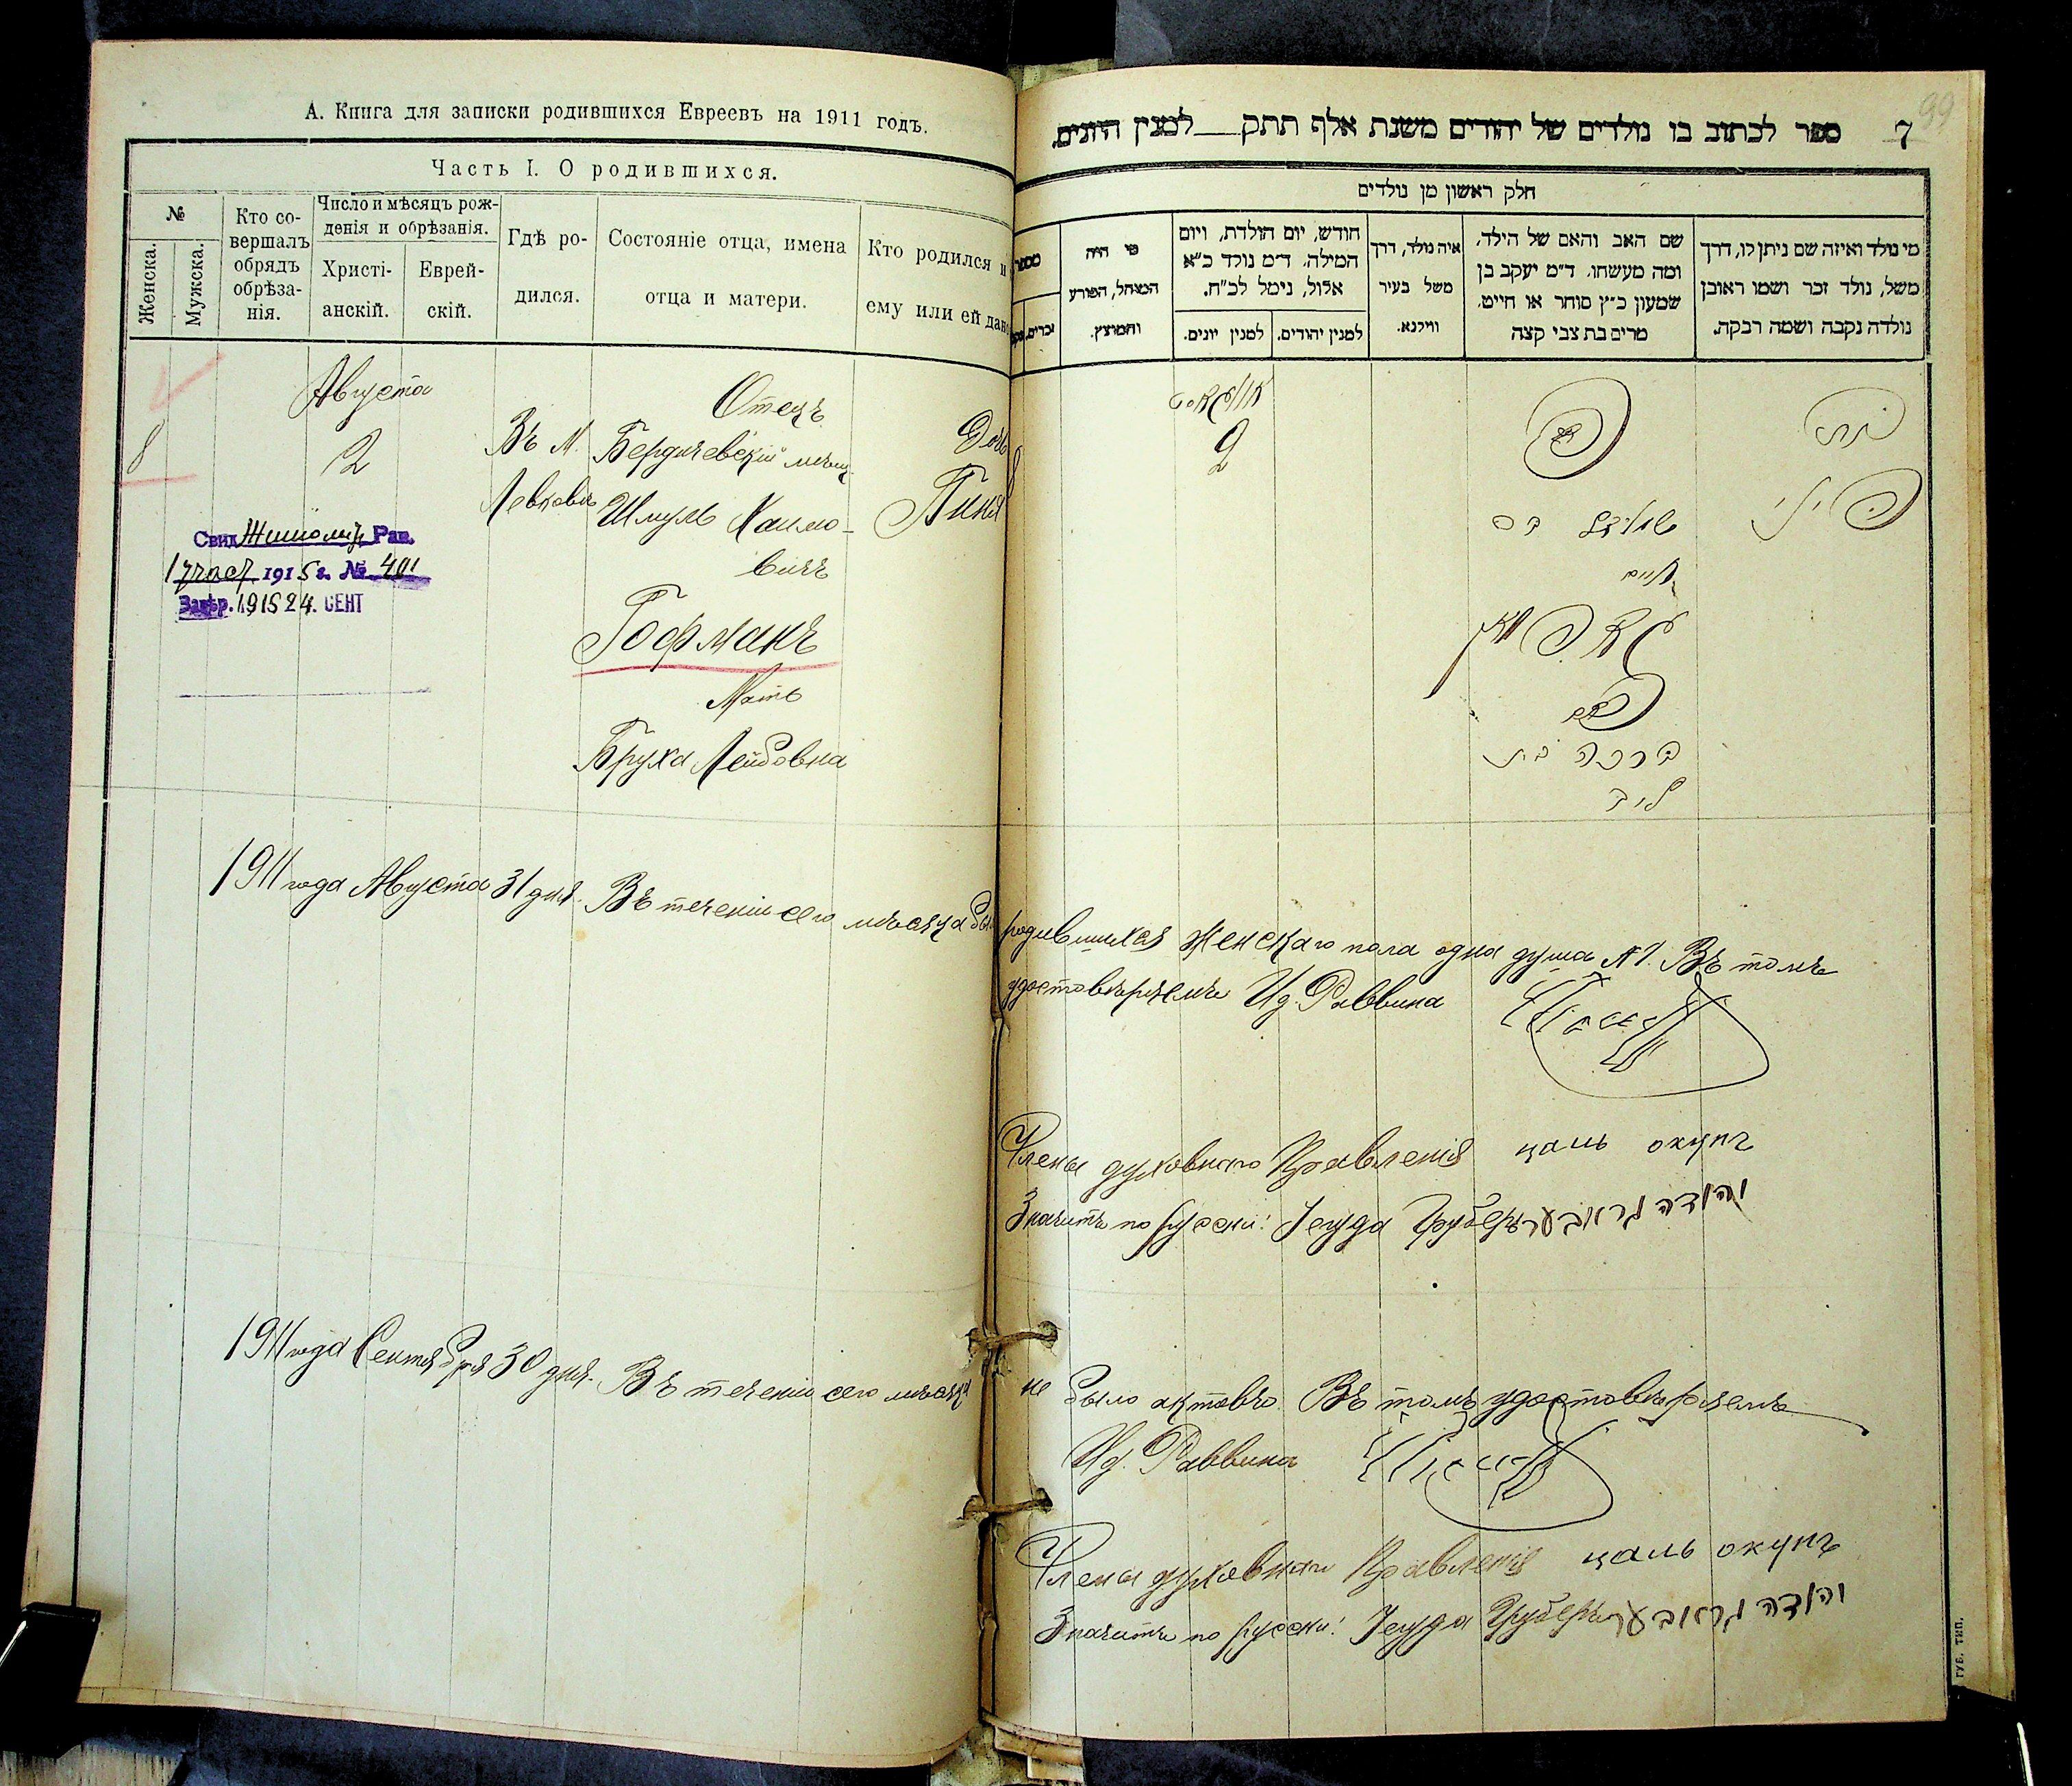 А. Книга для записки родившихся Евреевъ на 1911 годъ.
Часть I. О родившихся.
№
Женска.
Мужска.
Кто со-
вершалъ
обрядъ
обрѣза-
нія.
Число и мѣсяцъ рож-
денія и обрѣзанія.
Христі-
анскій.
Еврей-
скій.
Гдѣ ро-
дился.
Состояніе отца, имена
отца и матери.
Кто родился и
ему или ей дано
8
Августа
2
Въ М.
Левковъ
Отецъ
Бердичевскій мѣщ.
Шмуль Хаимо-
вичъ
Гофманъ
Мать
Бруха Лейбовна
Дочь
Свид. Житомир. Рав.
1915 г. № 401
1915 24. СЕНТ
1911 года Августа 31 дня. Въ теченіи сего мѣсяца
1911 года Сентября 30 дня. Въ теченіи сего мѣсяца
99
7 ספר לכתוב בו נולדים של יהודים משנת אלף תתק למנין היונים.
חלק ראשון מן נולדים
מי נולד ואיזה שם ניתן לו, דרך
משל, נולד זכר ושמו ראובן
נולדה נקבה ושמה רבקה.
שם האב והאם של הילד,
ומה מעשהו. ד"מ יעקב בן
שמעון כ"ץ סוחר או חייט.
מרים בת צבי קצה
איה נולד, דרך
משל בעיר
ווילנא.
חודש, יום הולדת, ויום
המילה. ד"מ נולד כ"א
אלול, נימל לכ"ח.
למנין יהודים.
למנין יונים.
מי היה
המוהל, הפורע
והמוצץ.
מספר
זכרים.
אוגוסט
2
שמואל בר
חיים
ברכה בת
ליב
родившихся женскаго пола одна душа №1. Въ томъ
удостовѣряемъ И д. Раввина
Члены духовнаго Правленія цаль окунь
Значитъ по русски: Іегуда Груберъ יהודה גראובער
не было актовъ. Въ томъ удостовѣряемъ
И д. Раввина
Члены духовнаго Правленія цаль окунь
Значитъ по русски: Іегуда Груберъ יהודה גראובער
ГУБ. ТИП.